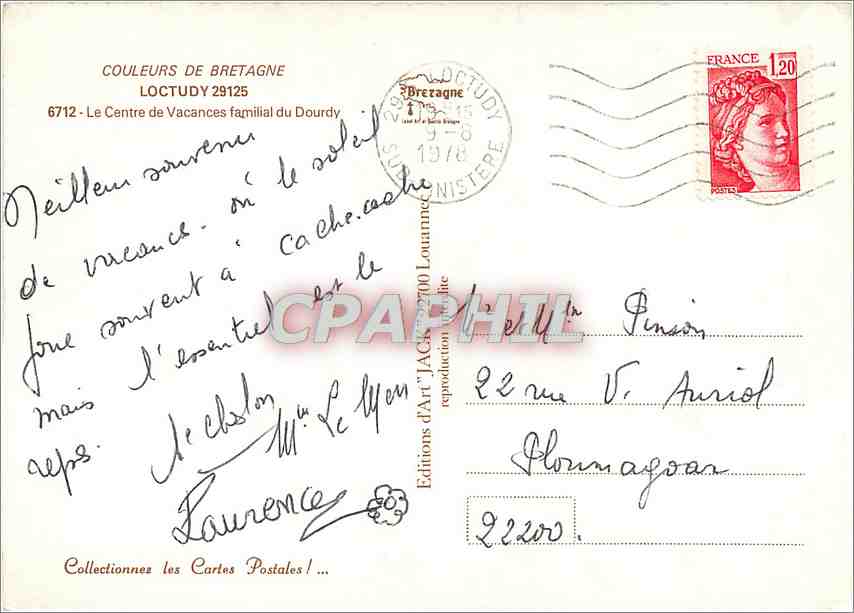 COULEURS DE BRETAGNE
LOCTUDY 29125
6712 - Le Centre de Vacances familial du Dourdy
Meilleur souvenir
de vacances - où le soleil
joue souvent à cache-cache
mais l'essentiel est le
repos.
Mme Le Men
Laurence
Collectionnez les Cartes Postales ! ...
Editions d'Art "JACK" 22700 Louannec
reproduction interdite
Bretagne
29 LOCTUDY
9-8
1978
SUD FINISTERE
FRANCE 1,20
POSTES
CPAPHIL
Mr et Mme Pinson
22 rue V. Auriol
Ploumagoar
22200.